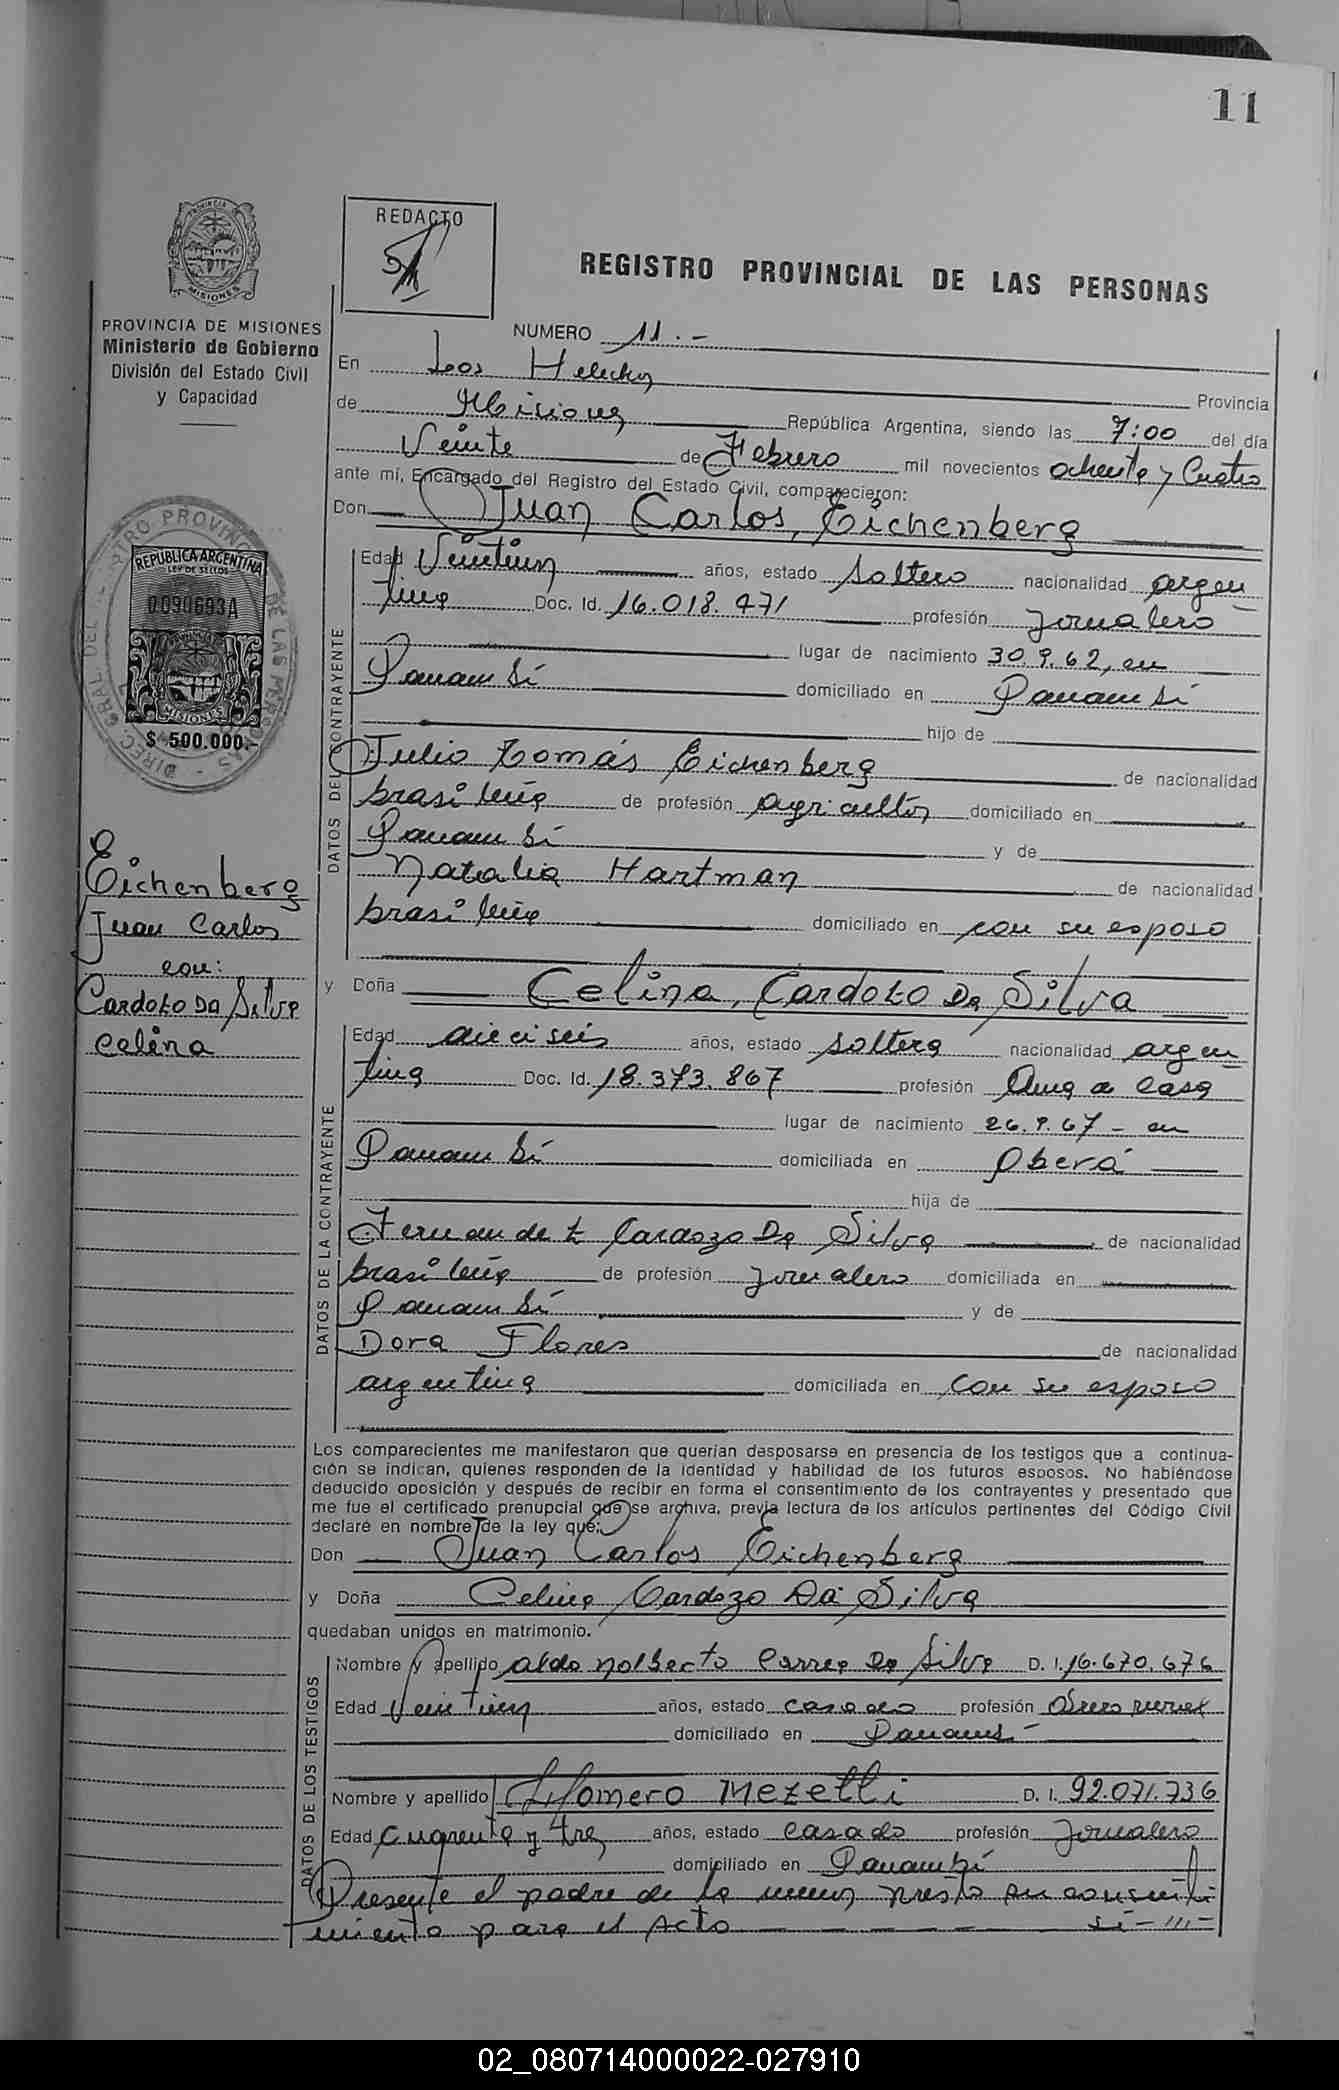 11
REDACTO
REGISTRO PROVINCIAL DE LAS PERSONAS
PROVINCIA DE MISIONES
Ministerio de Gobierno
División del Estado Civil
y Capacidad
NUMERO 11.-
En Los Helechos
Provincia
de Misiones República Argentina, siendo las 7:00 del día
Veinte de Febrero mil novecientos ochenta y Cuatro
ante mí, Encargado del Registro del Estado Civil, comparecieron:
Don Juan Carlos, Eichenberg
REPUBLICA ARGENTINA
LEY DE SELLOS
0090693A
MISIONES
$ 500.000.-
DATOS DEL CONTRAYENTE
Edad Veintiun años, estado soltero nacionalidad argen
tina Doc. Id. 16.018.471 profesión Jornalero
lugar de nacimiento 30.9.62, en
Panambí domiciliado en Panambí
hijo de
Julio Tomás Eichenberg de nacionalidad
brasileña de profesión agricultor domiciliado en
Panambí y de
Natalia Hartman de nacionalidad
brasileña domiciliado en con su esposo
Eichenberg
Juan Carlos
con:
Cardozo Da Silva
Celina
y Doña Celina, Cardozo Da Silva
DATOS DE LA CONTRAYENTE
Edad dieciseis años, estado soltera nacionalidad argen
tina Doc. Id. 18.373.867 profesión Ama de casa
lugar de nacimiento 26.9.67 - en
Panambí domiciliada en Oberá
hija de
Fernandez Cardozo Da Silva de nacionalidad
brasileña de profesión jornalero domiciliada en
Panambí y de
Dora Flores de nacionalidad
argentina domiciliada en con su esposo
Los comparecientes me manifestaron que querían desposarse en presencia de los testigos que a continua-
ción se indican, quienes responden de la identidad y habilidad de los futuros esposos. No habiéndose
deducido oposición y después de recibir en forma el consentimiento de los contrayentes y presentado que
me fue el certificado prenupcial que se archiva, previa lectura de los artículos pertinentes del Código Civil
declaré en nombre de la ley que:
Don Juan Carlos Eichenberg
y Doña Celina Cardozo Da Silva
quedaban unidos en matrimonio.
DATOS DE LOS TESTIGOS
Nombre y apellido Aldo Nolberto Correa Da Silva D. I. 16.670.676
Edad Veintiun años, estado casado profesión Obrero rural
domiciliado en Panambí
Nombre y apellido Homero Mezetti D. I. 92.071.736
Edad Cuarenta y tres años, estado casado profesión Jornalero
domiciliado en Panambí
Presente el padre de la menor presto su consenti
miento para el acto si-///-
02_080714000022-027910